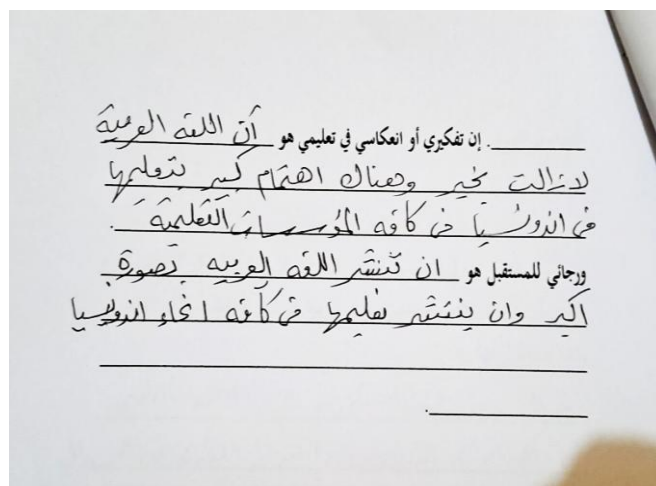 . إن تفكيري أو انعكاسي في تعليمي هو أن اللغه العربية
لازالت بخير وهناك اهتمام كبير بتعليمها
في اندونسيا في كافه المؤسسات التعليمية .
ورجائي للمستقبل هو ان تنتشر اللغه العربيه بصورة
اكبر وان ينتشر تعليمها في كافه انحاء اندونيسيا
.